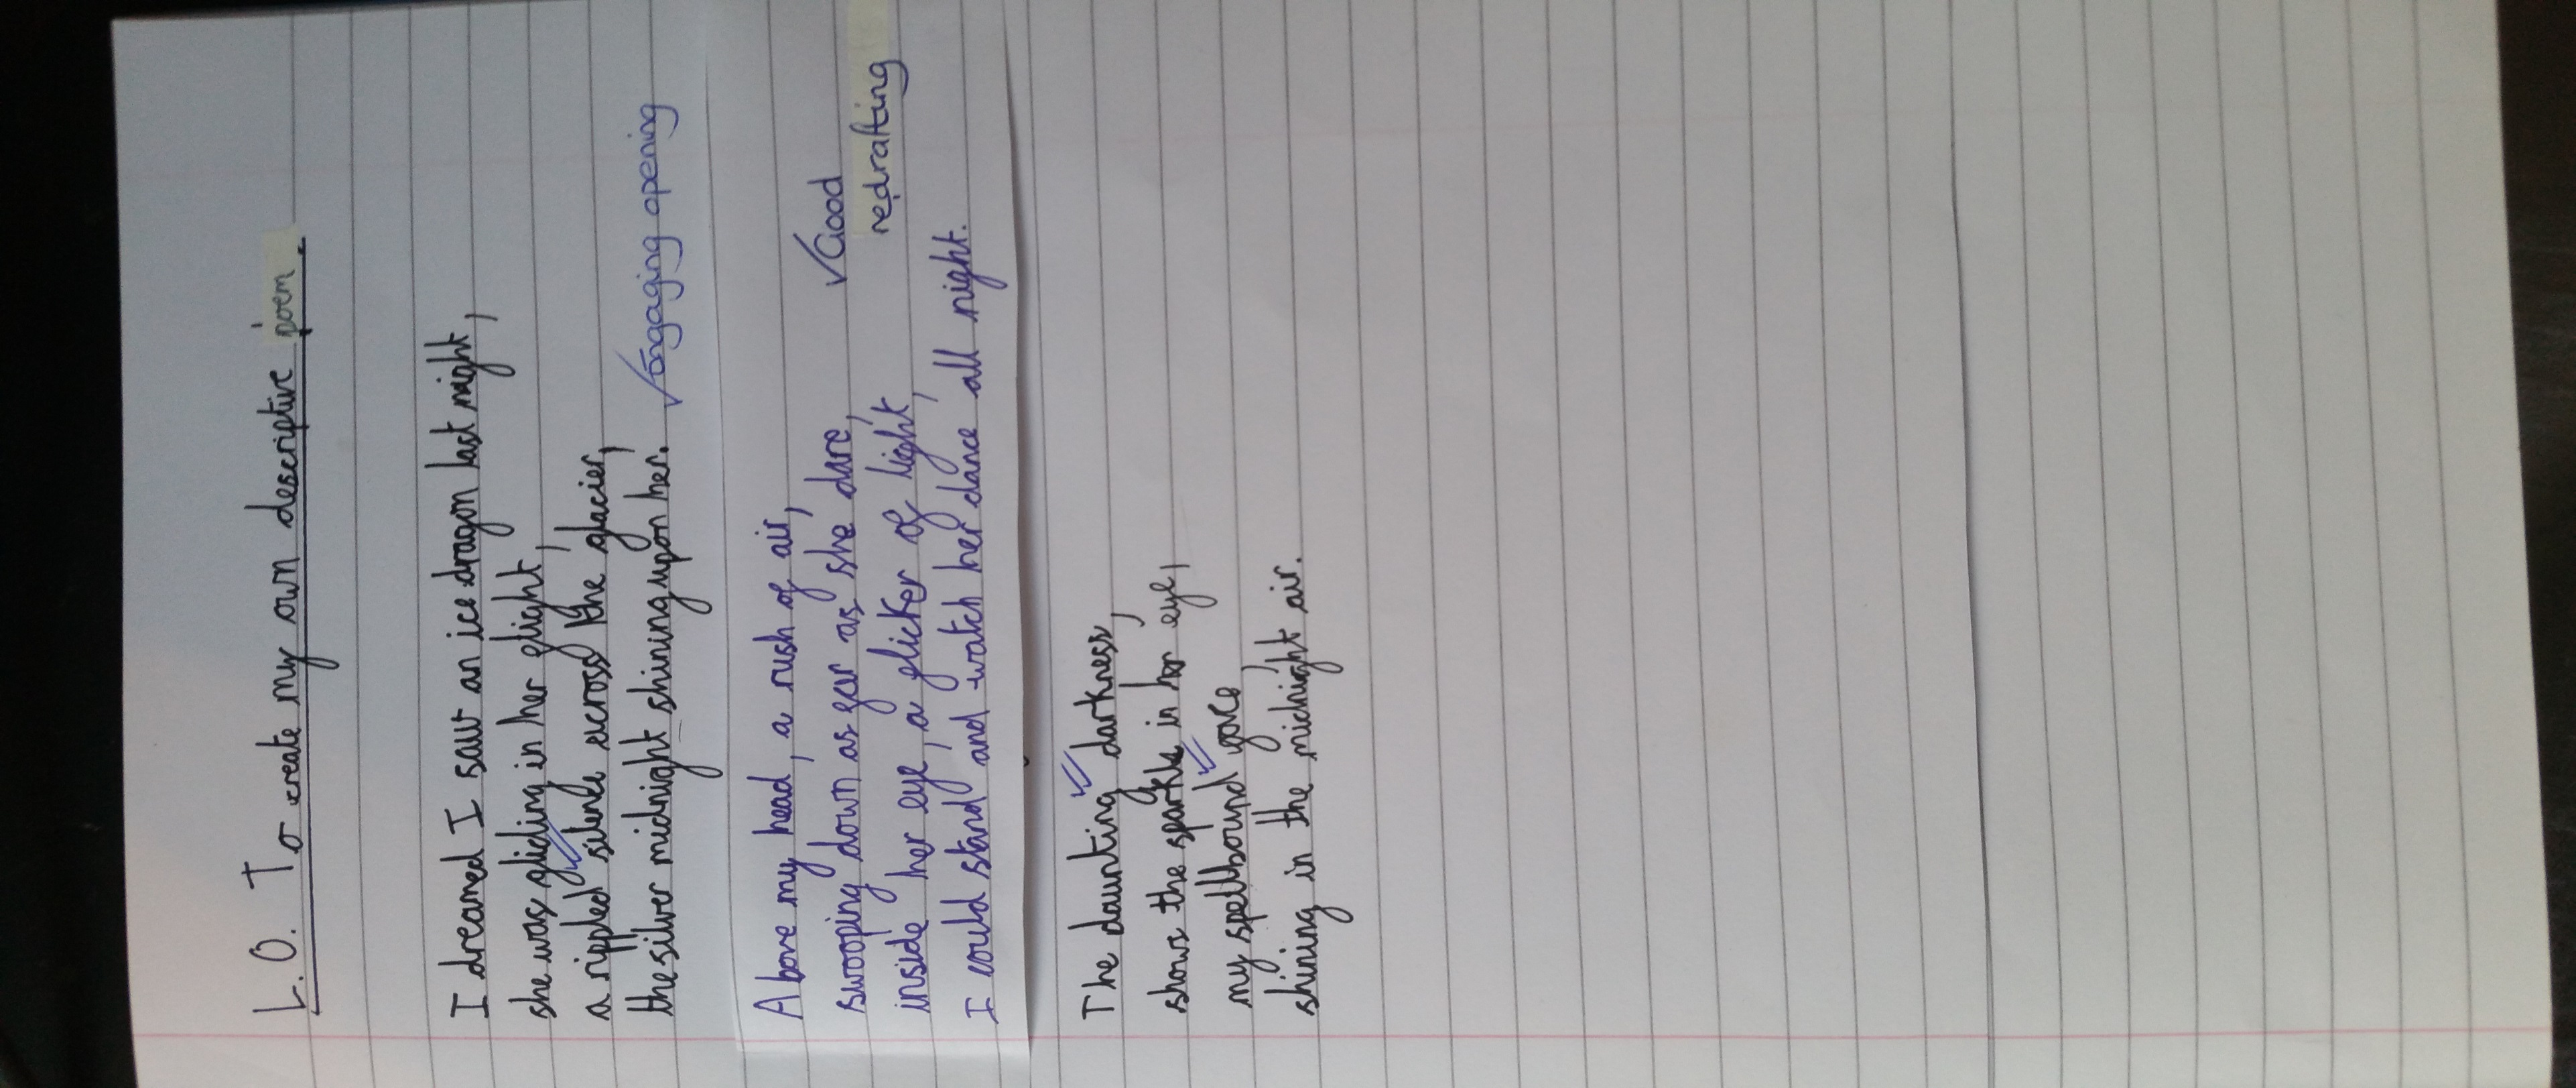 L.O. To create my own descriptive poem.
I dreamed I saw an ice dragon last night,
she was gliding in her flight,
a rippled silence across the glacier,
the silver midnight shining upon her.
✓Engaging opening
Above my head, a rush of air,
swooping down as far as she dare,
✓Good
redrafting
inside her eye, a flicker of light,
I could stand and watch her dance all night.
The daunting darkness,
shows the sparkle in her eye,
my spellbound gaze
shining in the midnight air.